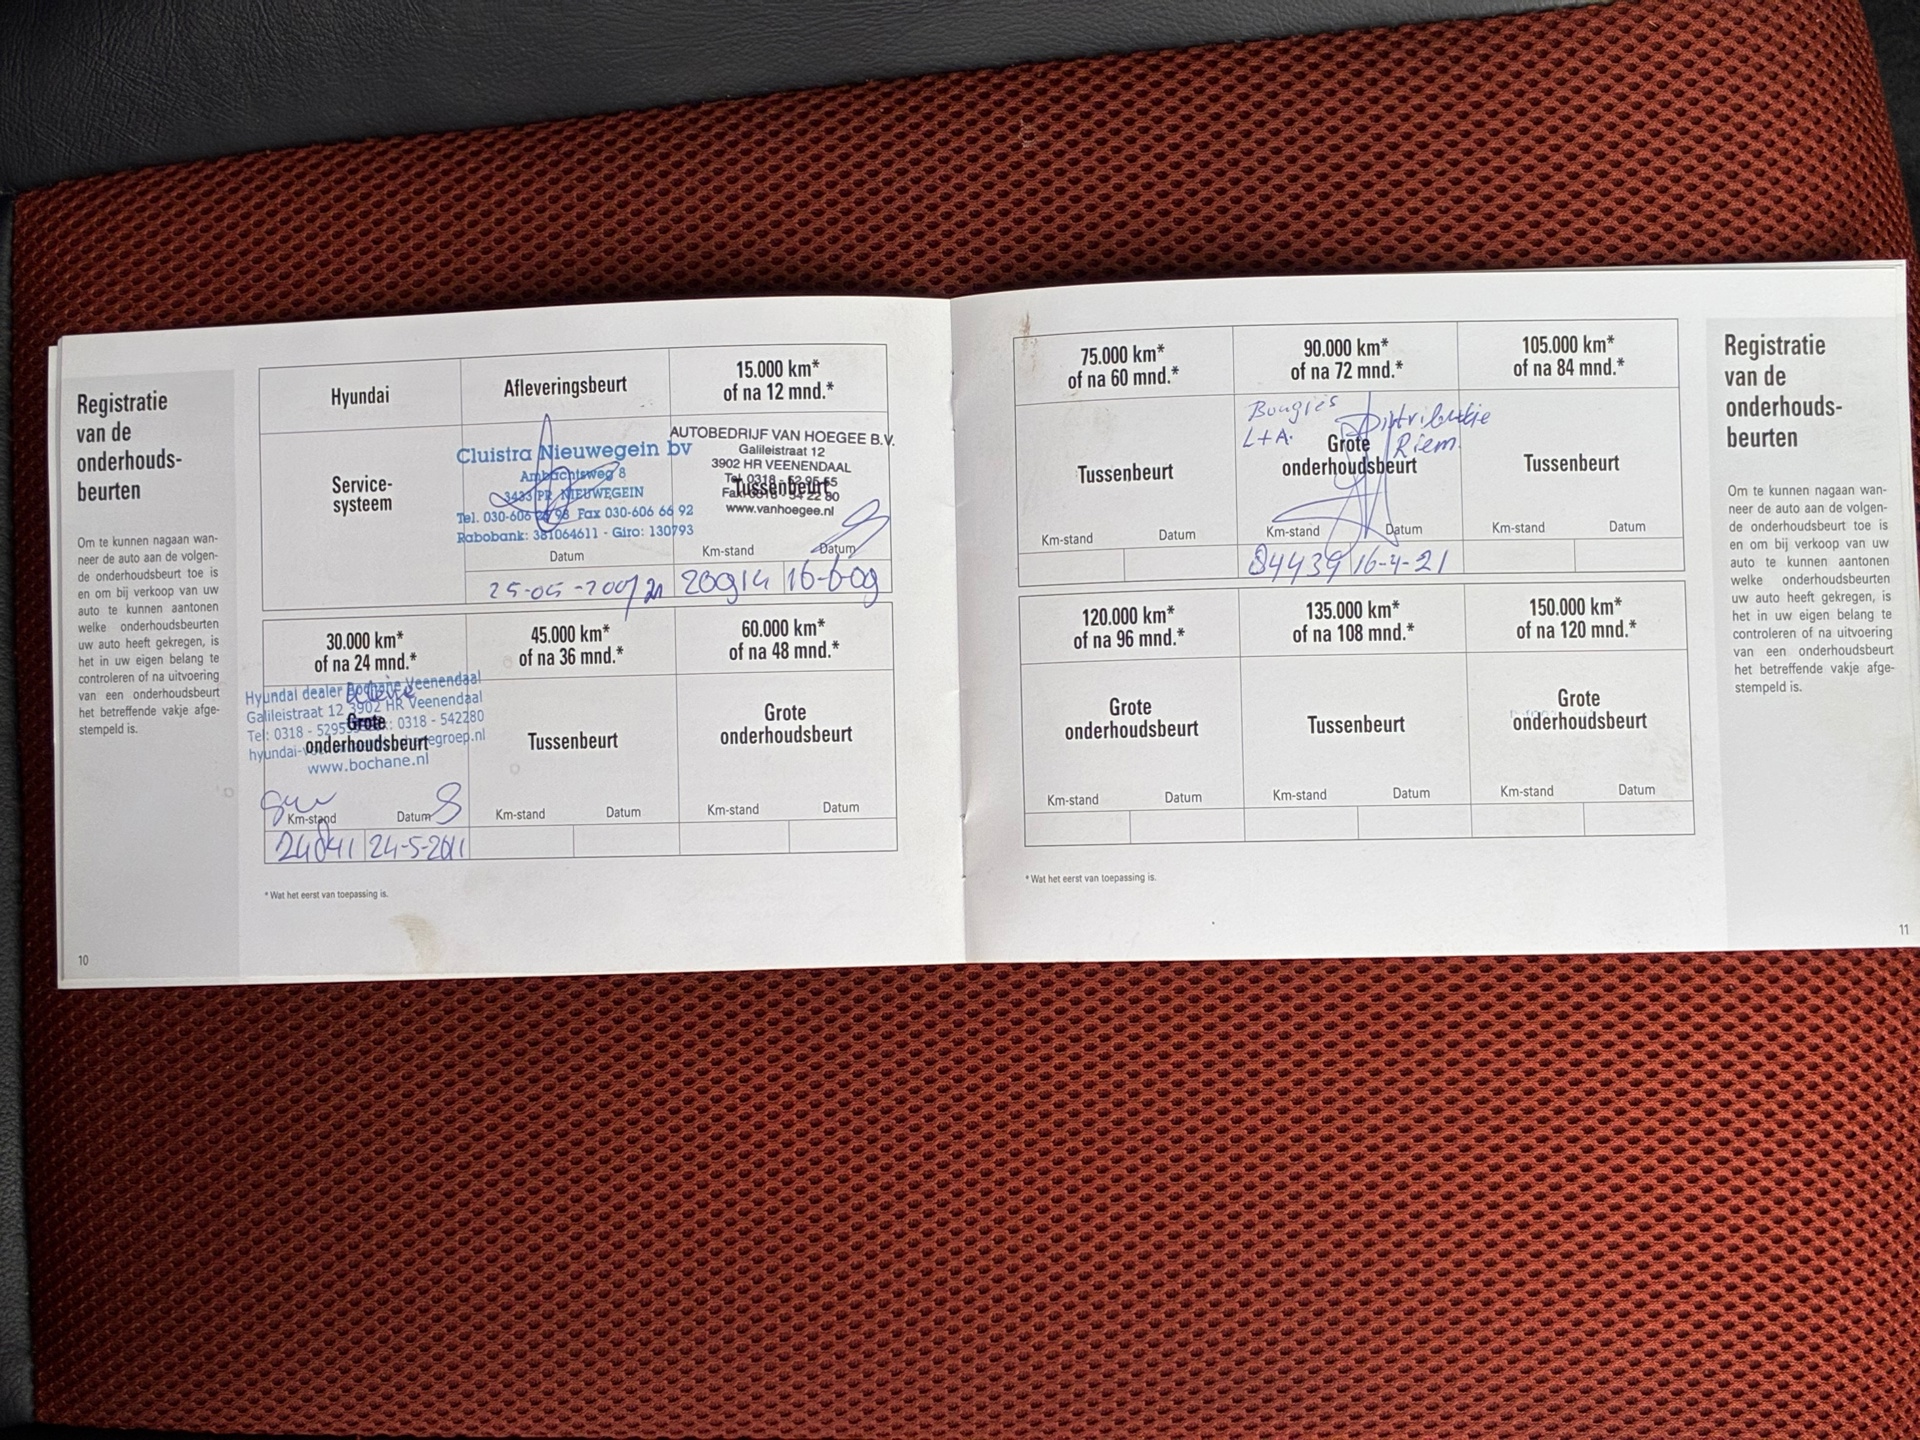 Registratie
van de
onderhouds-
beurten
Om te kunnen nagaan wan-
neer de auto aan de volgen-
de onderhoudsbeurt toe is
en om bij verkoop van uw
auto te kunnen aantonen
welke onderhoudsbeurten
uw auto heeft gekregen, is
het in uw eigen belang te
controleren of na uitvoering
van een onderhoudsbeurt
het betreffende vakje afge-
stempeld is.
10
Hyundai
Service-
systeem
Afleveringsbeurt
Cluistra Nieuwegein bv
Ambachtsweg 8
3433 PR NIEUWEGEIN
Tel. 030-606 98 Fax 030-606 66 92
Rabobank: 381064611 - Giro: 130793
Datum
25-05-2007
15.000 km*
of na 12 mnd.*
AUTOBEDRIJF VAN HOEGEE B.V.
Galileistraat 12
3902 HR VEENENDAAL
Tel. 0318 - 52 95 55
Tussenbeurt
Fax 0318 - 54 22 80
www.vanhoegee.nl
Km-stand Datum
20914 16-6-09
30.000 km*
of na 24 mnd.*
Hyundai dealer Bochane Veenendaal
Galileistraat 12 3902 HR Veenendaal
Tel: 0318 - 5295 : 0318 - 542280
Grote
onderhoudsbeurt
www.bochane.nl
Km-stand Datum
24041 24-5-2011
45.000 km*
of na 36 mnd.*
Tussenbeurt
Km-stand Datum
60.000 km*
of na 48 mnd.*
Grote
onderhoudsbeurt
Km-stand Datum
* Wat het eerst van toepassing is.
75.000 km*
of na 60 mnd.*
Tussenbeurt
Km-stand Datum
90.000 km*
of na 72 mnd.*
Bougies Distributie
L+A. Riem.
Grote
onderhoudsbeurt
Km-stand Datum
84439 16-4-21
105.000 km*
of na 84 mnd.*
Tussenbeurt
Km-stand Datum
120.000 km*
of na 96 mnd.*
Grote
onderhoudsbeurt
Km-stand Datum
135.000 km*
of na 108 mnd.*
Tussenbeurt
Km-stand Datum
150.000 km*
of na 120 mnd.*
Grote
onderhoudsbeurt
Km-stand Datum
* Wat het eerst van toepassing is.
Registratie
van de
onderhouds-
beurten
Om te kunnen nagaan wan-
neer de auto aan de volgen-
de onderhoudsbeurt toe is
en om bij verkoop van uw
auto te kunnen aantonen
welke onderhoudsbeurten
uw auto heeft gekregen, is
het in uw eigen belang te
controleren of na uitvoering
van een onderhoudsbeurt
het betreffende vakje afge-
stempeld is.
11